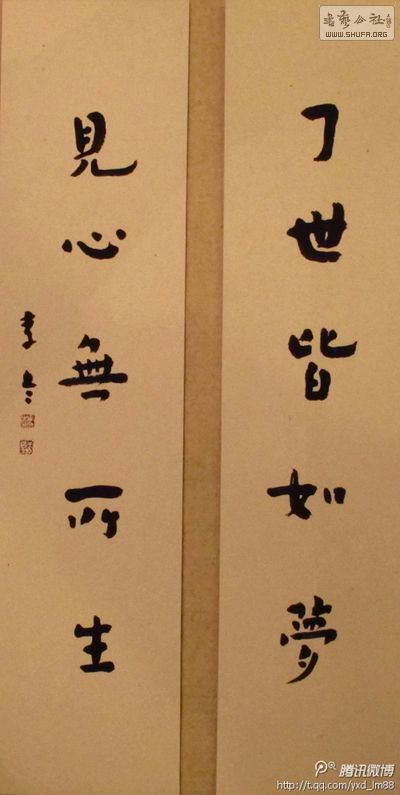 了世皆如夢
見心無所生
書藝公社
WWW.SHUFA.ORG
腾讯微博
http://t.qq.com/yxd_lm88